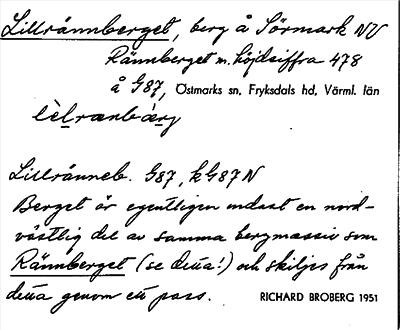 Lillrännberget, berg å Sörmark NV
Rännberget m. höjdsiffra 478
å G87, Östmarks sn, Fryksdals hd, Värml. län
lèlrænbærg
Lillränneb. G87, k G87 N
Berget är egentligen endast en nord-
västlig del av samma bergmassiv som
Rännberget (se detta!) och skiljes från
detta genom ett pass.
RICHARD BROBERG 1951